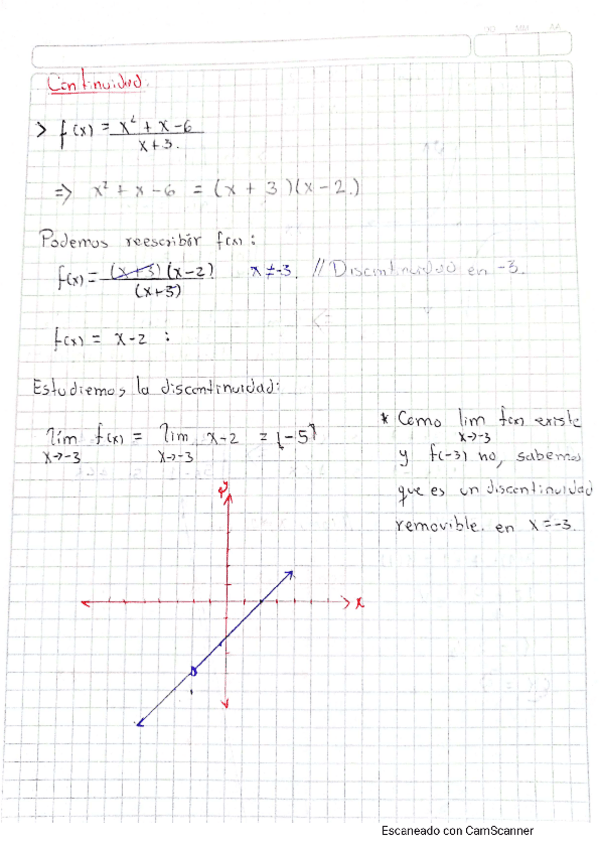 Continuidad.
> f(x) = x² + x - 6 / x + 3.
=> x² + x - 6 = (x + 3)(x - 2.)
Podemos reescribir f(x) :
f(x) = (x+3)(x-2) / (x+3) x ≠ -3. // Discontinuidad en -3.
f(x) = x - 2 :
Estudiemos la discontinuidad:
lim x→-3 f(x) = lim x→-3 x-2 = [-5]
* Como lim x→-3 f(x) existe
y f(-3) no, sabemos
que es un discontinuidad
removible. en x = -3.
y
x
Escaneado con CamScanner